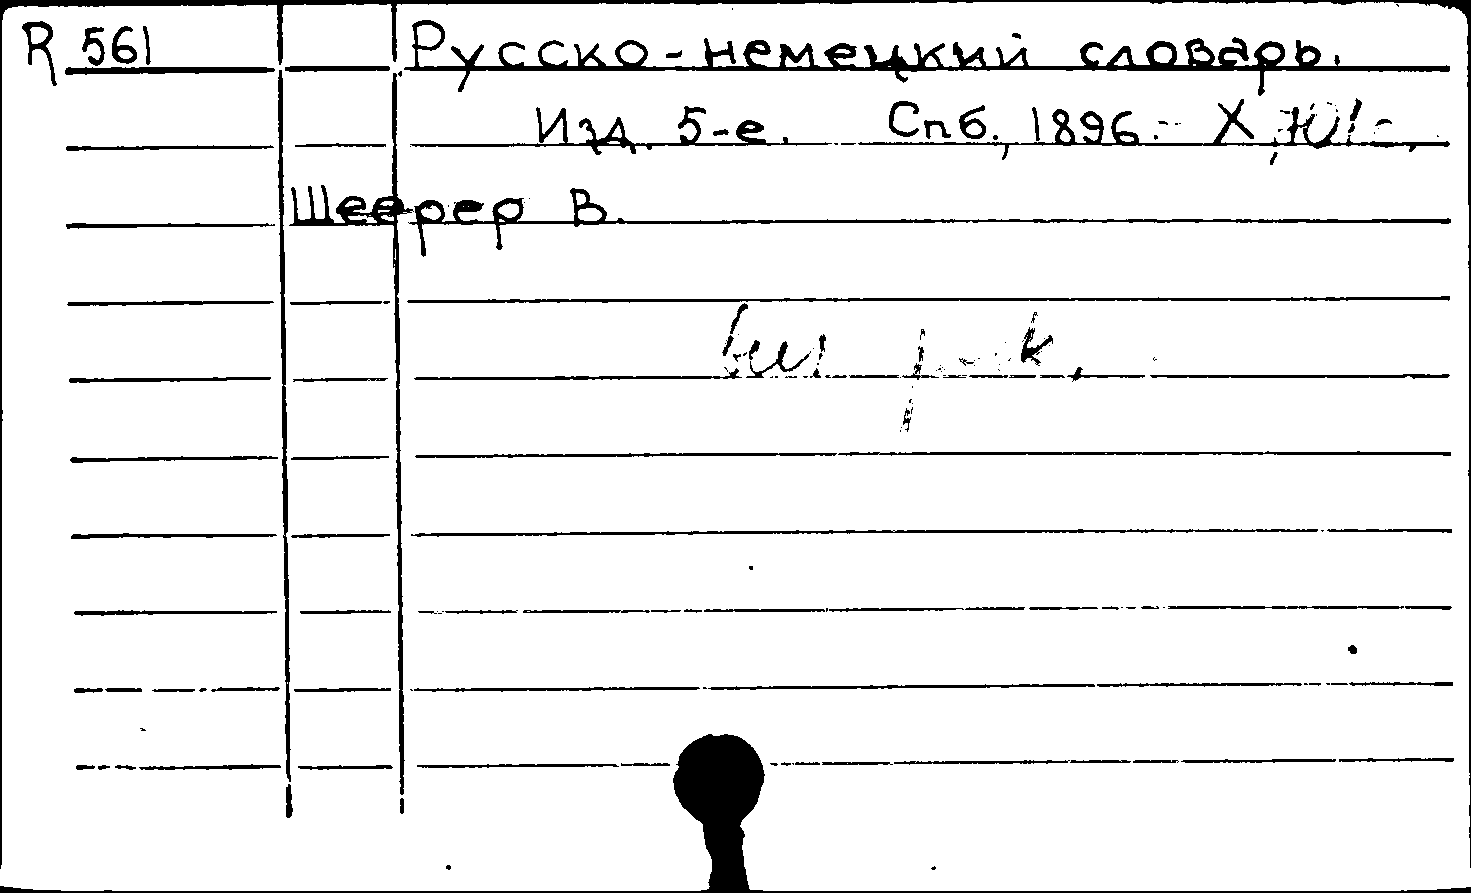 R 561 Русско-немецкий словарь.
Изд. 5-е. Спб., 1896.- X, 701 с.
Шеерер В.